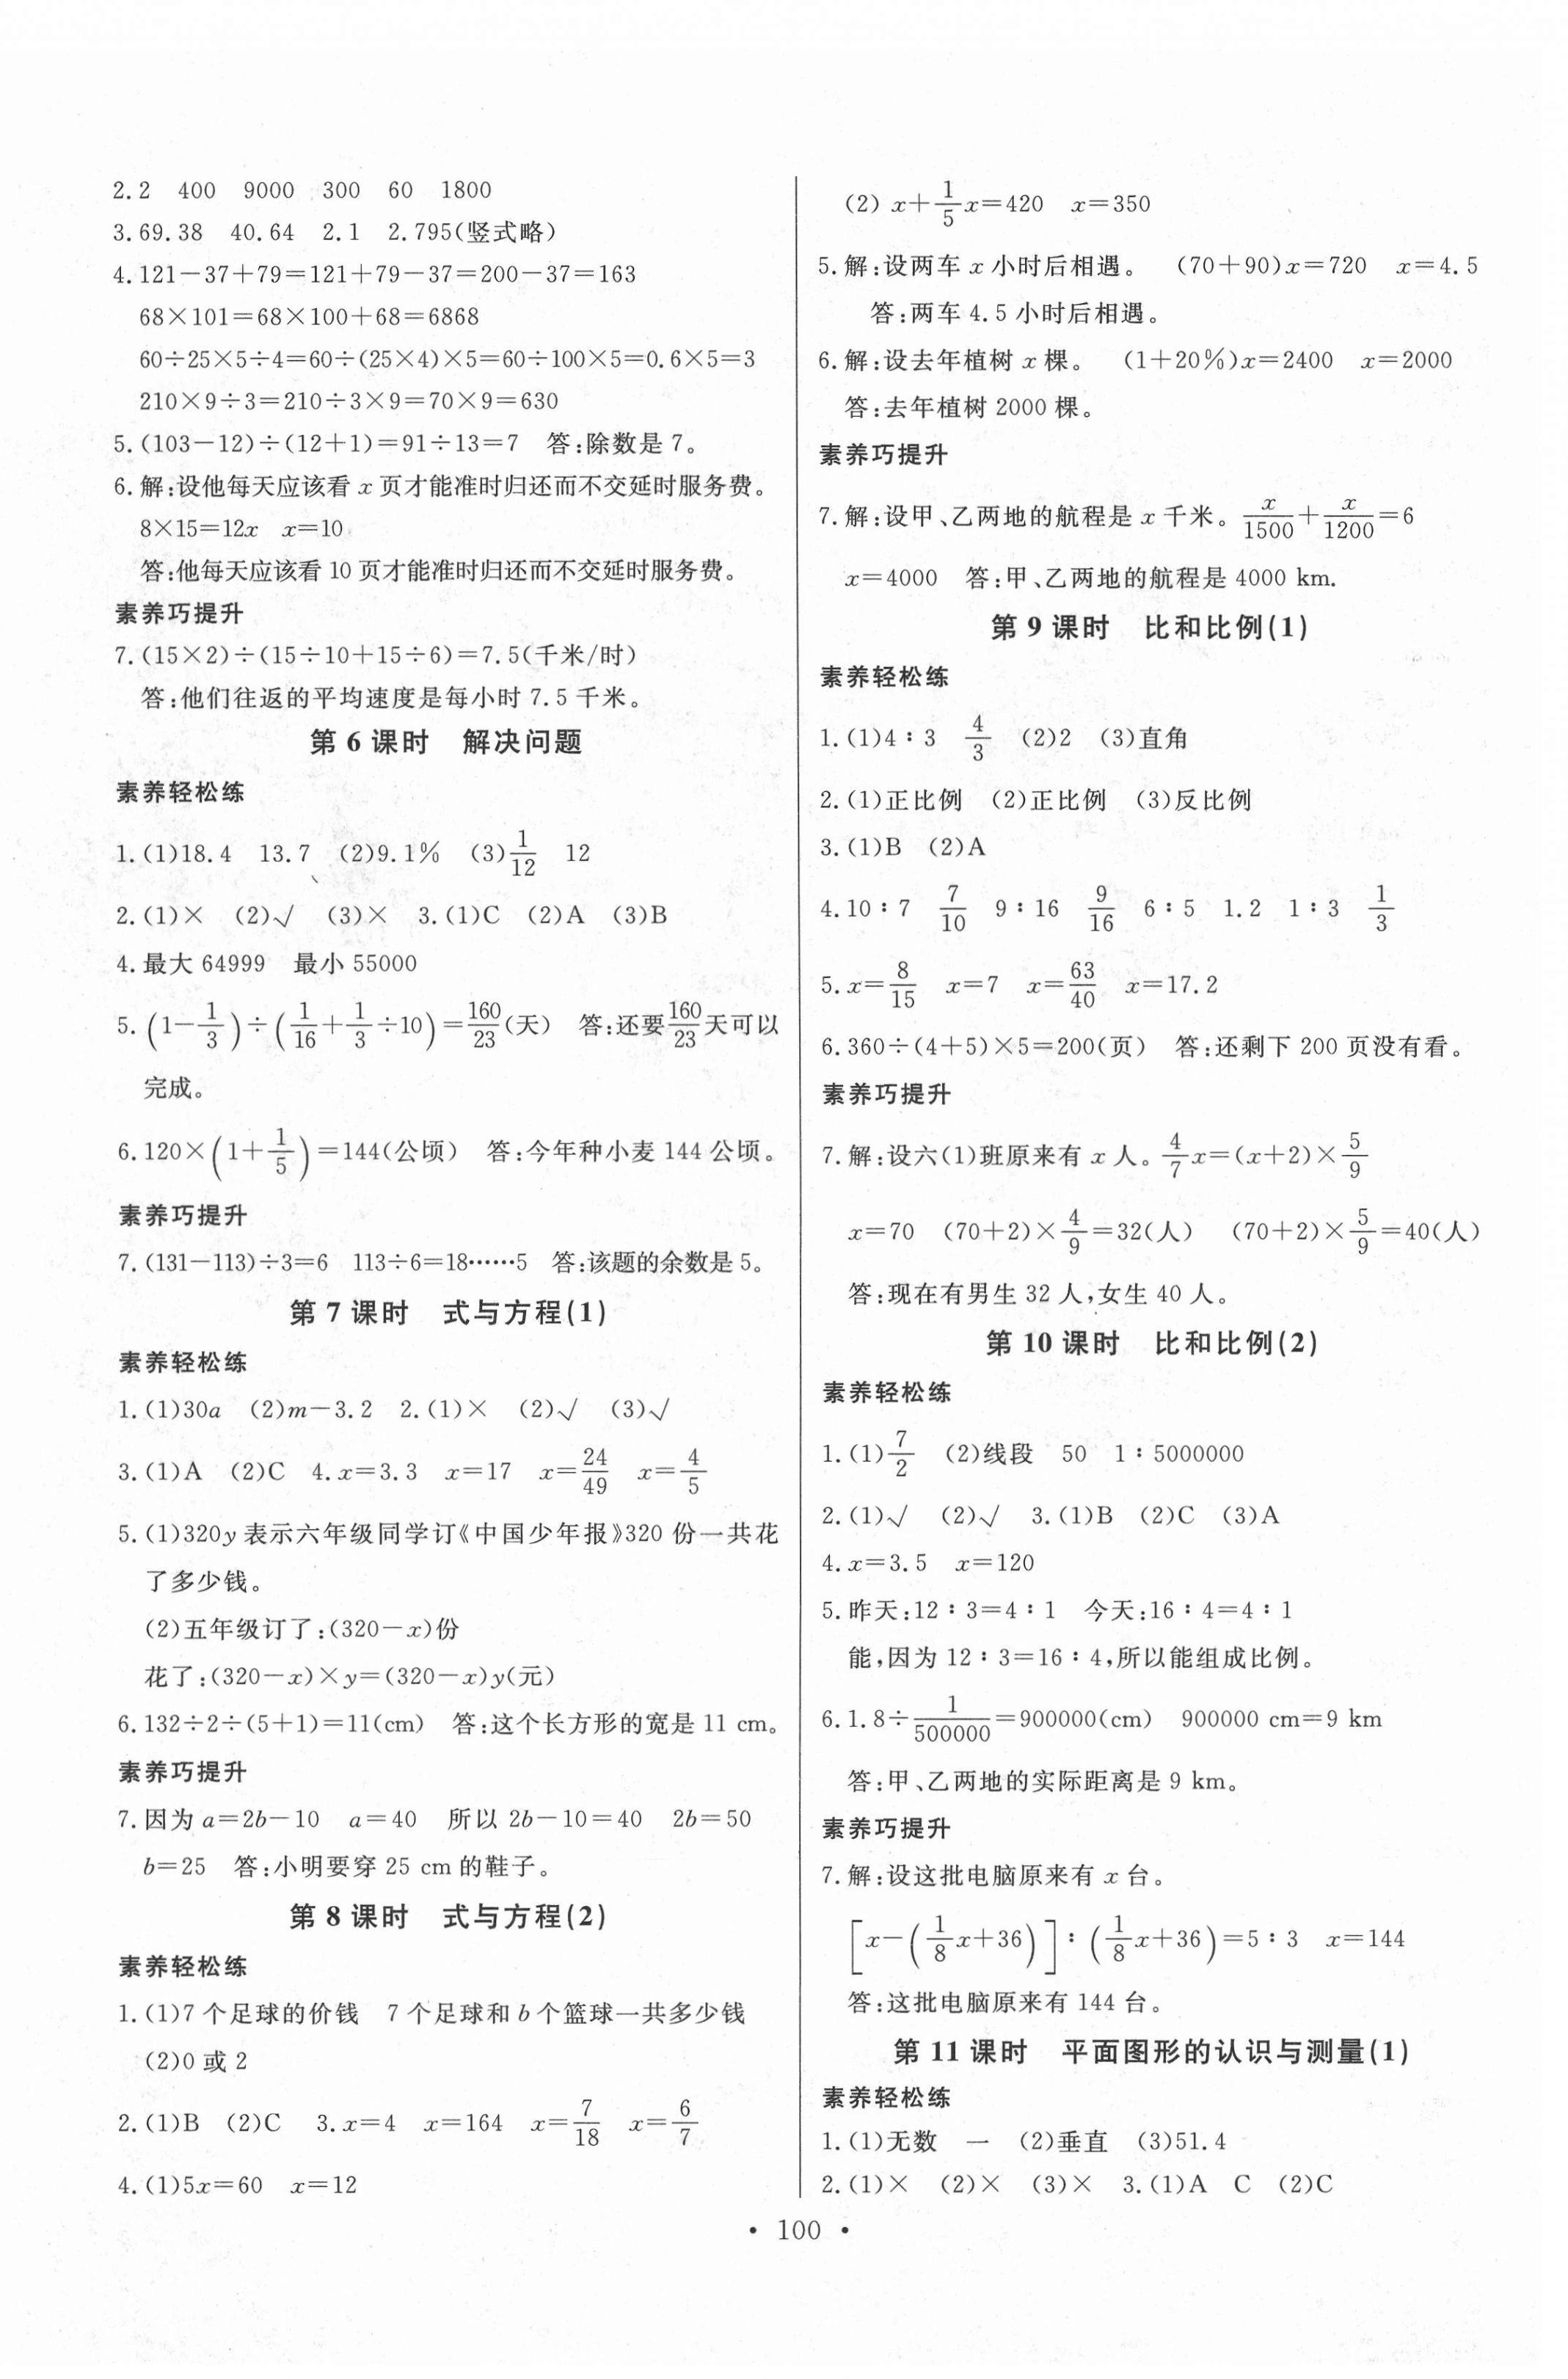 2.2 400 9000 300 60 1800
3.69.38 40.64 2.1 2.795(竖式略)
4.121−37+79=121+79−37=200−37=163
68×101=68×100+68=6868
60÷25×5÷4=60÷(25×4)×5=60÷100×5=0.6×5=3
210×9÷3=210÷3×9=70×9=630
5.(103−12)÷(12+1)=91÷13=7 答:除数是7。
6.解:设他每天应该看x页才能准时归还而不交延时服务费。
8×15=12x x=10
答:他每天应该看10页才能准时归还而不交延时服务费。
素养巧提升
7.(15×2)÷(15÷10+15÷6)=7.5(千米/时)
答:他们往返的平均速度是每小时7.5千米。
第6课时 解决问题
素养轻松练
1.(1)18.4 13.7 (2)9.1% (3)1/12 12
2.(1)× (2)√ (3)× 3.(1)C (2)A (3)B
4.最大64999 最小55000
5.(1−1/3)÷(1/16+1/3÷10)=160/23(天) 答:还要160/23天可以
完成。
6.120×(1+1/5)=144(公顷) 答:今年种小麦144公顷。
素养巧提升
7.(131−113)÷3=6 113÷6=18……5 答:该题的余数是5。
第7课时 式与方程(1)
素养轻松练
1.(1)30a (2)m−3.2 2.(1)× (2)√ (3)√
3.(1)A (2)C 4.x=3.3 x=17 x=24/49 x=4/5
5.(1)320y表示六年级同学订《中国少年报》320份一共花
了多少钱。
(2)五年级订了:(320−x)份
花了:(320−x)×y=(320−x)y(元)
6.132÷2÷(5+1)=11(cm) 答:这个长方形的宽是11 cm。
素养巧提升
7.因为a=2b−10 a=40 所以2b−10=40 2b=50
b=25 答:小明要穿25 cm的鞋子。
第8课时 式与方程(2)
素养轻松练
1.(1)7个足球的价钱 7个足球和b个篮球一共多少钱
(2)0或2
2.(1)B (2)C 3.x=4 x=164 x=7/18 x=6/7
4.(1)5x=60 x=12
(2) x+1/5x=420 x=350
5.解:设两车x小时后相遇。 (70+90)x=720 x=4.5
答:两车4.5小时后相遇。
6.解:设去年植树x棵。 (1+20%)x=2400 x=2000
答:去年植树2000棵。
素养巧提升
7.解:设甲、乙两地的航程是x千米。x/1500+x/1200=6
x=4000 答:甲、乙两地的航程是4000 km.
第9课时 比和比例(1)
素养轻松练
1.(1)4∶3 4/3 (2)2 (3)直角
2.(1)正比例 (2)正比例 (3)反比例
3.(1)B (2)A
4.10∶7 7/10 9∶16 9/16 6∶5 1.2 1∶3 1/3
5.x=8/15 x=7 x=63/40 x=17.2
6.360÷(4+5)×5=200(页) 答:还剩下200页没有看。
素养巧提升
7.解:设六(1)班原来有x人。4/7x=(x+2)×5/9
x=70 (70+2)×4/9=32(人) (70+2)×5/9=40(人)
答:现在有男生32人,女生40人。
第10课时 比和比例(2)
素养轻松练
1.(1)7/2 (2)线段 50 1∶5000000
2.(1)√ (2)√ 3.(1)B (2)C (3)A
4.x=3.5 x=120
5.昨天:12∶3=4∶1 今天:16∶4=4∶1
能,因为12∶3=16∶4,所以能组成比例。
6.1.8÷1/500000=900000(cm) 900000 cm=9 km
答:甲、乙两地的实际距离是9 km。
素养巧提升
7.解:设这批电脑原来有x台。
[x−(1/8x+36)]∶(1/8x+36)=5∶3 x=144
答:这批电脑原来有144台。
第11课时 平面图形的认识与测量(1)
素养轻松练
1.(1)无数 一 (2)垂直 (3)51.4
2.(1)× (2)× (3)× 3.(1)A C (2)C
• 100 •